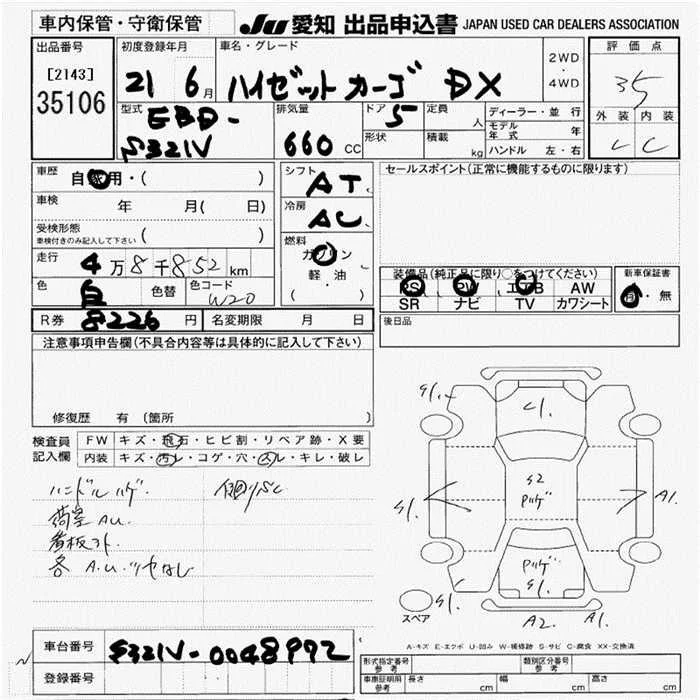 車内保管・守衛保管
JU 愛知 出品申込書 JAPAN USED CAR DEALERS ASSOCIATION
出品番号
[2143]
35106
初度登録年月
21 6月
車名・グレード
ハイゼットカーゴ DX
2WD
・
4WD
評価点
3.5
外装 内装
C
型式
EBD-
S321V
排気量
660 CC
ドア
5
形状
定員
人
積載
kg
ディーラー・並行
モデル年式 年
ハンドル 左・右
車歴
自家用・( )
車検
年 月( 日)
受検形態
車検付きのみ記入して下さい ( )
走行
4万8千852km
色
白
色替
色コード
W20
R券 8226円
名変期限 月 日
シフト
AT
冷房
AC
燃料
ガソリン
軽・油
( )
セールスポイント(正常に機能するものに限ります)
装備品(純正品に限り○をつけてください)
PS PW エアB AW
SR ナビ TV カワシート
新車保証書
有・無
後日品
注意事項申告欄(不具合内容等は具体的に記入して下さい)
修復歴 有 (箇所
検査員
記入欄
FW キズ・飛石・ヒビ割・リペア跡・X要
内装 キズ・汚レ・コゲ・穴・スレ・キレ・破レ
ハンドルハゲ.
荷室 AU.
看板コト.
各 A.U.ツヤなし
S1.
S1.
A1.
S2
ハゲ
ハゲ
S1.
S1.
A2.
A1.
スペア
A-キズ E-エクボ U-凹み W-補修跡 S-サビ C-腐食 XX-交換済
車台番号
S321V-0048992
登録番号
形式指定番号
参考
類別区分番号
参考
車庫証明用
参考
長さ cm
幅 cm
高さ cm